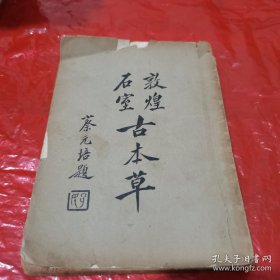 敦煌
石室
古本草
蔡元培題
孔夫子旧书网